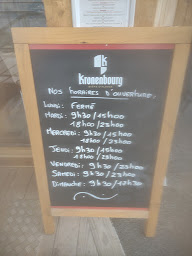 Kronenbourg
Nos horaires d'ouverture:
Lundi: Fermé
Mardi: 9h30/15h00
18h00/23h00
Mercredi: 9h30/15h00
18h00/23h00
Jeudi: 9h30/15h00
18h00/23h00
Vendredi: 9h30/23h00
Samedi: 9h30/23h00
Dimanche: 9h30/17h30